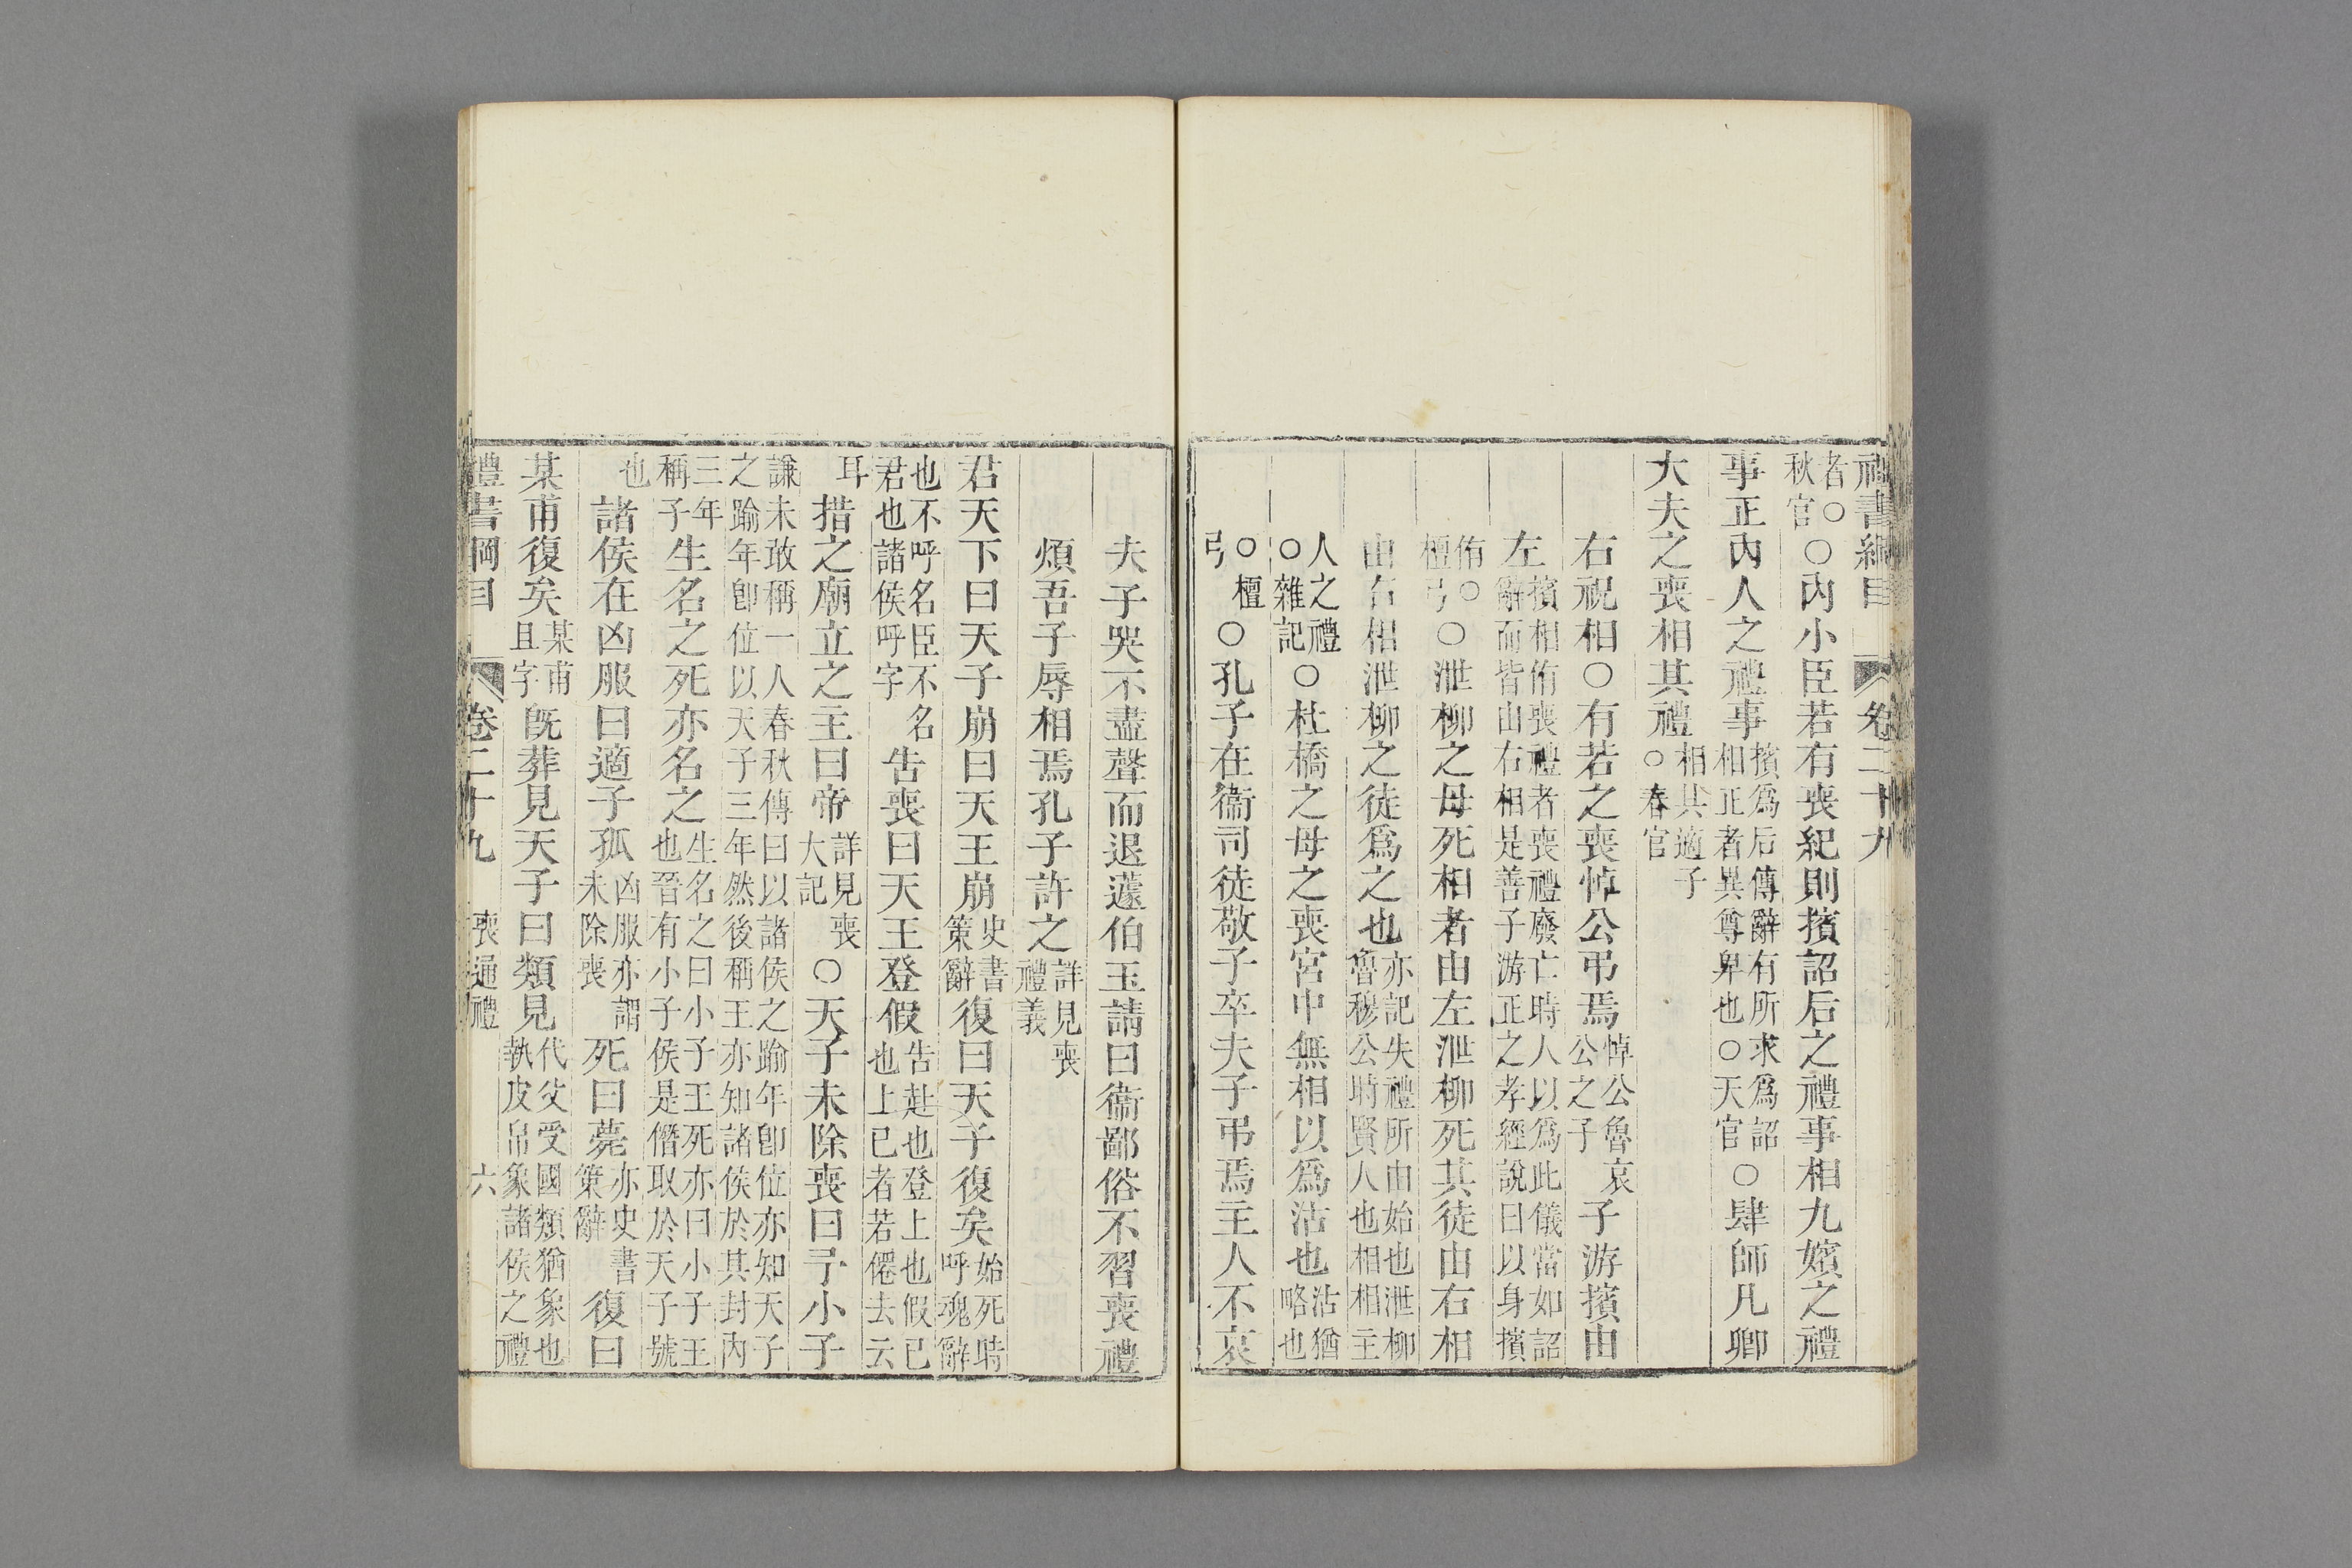 禮書綱目 卷二十九
者○秋官○內小臣若有喪紀則擯詔后之禮事相九嬪之禮
事正內人之禮事擯爲后傳辭有所求爲詔相正者異尊卑也○天官○肆師凡卿
大夫之喪相其禮相其適子○春官
右祝相○有若之喪悼公弔焉悼公魯哀公之子子游擯由
左擯相侑喪禮者喪禮廢亡時人以爲此儀當如詔辭而皆由右相是善子游正之孝經說曰以身擯
侑○檀弓○泄柳之母死相者由左泄柳死其徒由右相
由右相泄柳之徒爲之也亦記失禮所由始也泄柳魯穆公時賢人也相相主
人之禮○雜記○杜橋之母之喪宮中無相以爲沽也沽猶略也
○檀弓○孔子在衞司徒敬子卒夫子弔焉主人不哀
夫子哭不盡聲而退蘧伯玉請曰衞鄙俗不習喪禮
煩吾子辱相焉孔子許之詳見喪禮義
君天下曰天子崩曰天王崩史書策辭復曰天子復矣始死時呼魂辭
也不呼名臣不名君也諸侯呼字告喪曰天王登假告赴也登上也假已也上已者若僊去云
耳措之廟立之主曰帝詳見喪大記○天子未除喪曰予小子
謙未敢稱一人春秋傳曰以諸侯之踰年卽位亦知天子之踰年卽位以天子三年然後稱王亦知諸侯於其封內
三年稱子生名之死亦名之生名之曰小子王死亦曰小子王也晉有小子侯是僭取於天子號
也諸侯在凶服曰適子孤凶服亦謂未除喪死曰薨亦史書策辭復曰
某甫復矣某甫且字旣葬見天子曰類見代父受國類猶象也執皮帛象諸侯之禮
禮書綱目 卷二十九 喪通禮 六